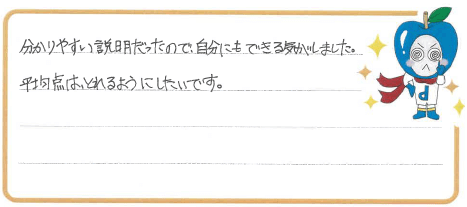 分かりやすい説明だったので、自分にもできる気がしました。
平均点は、とれるようにしたいです。
d